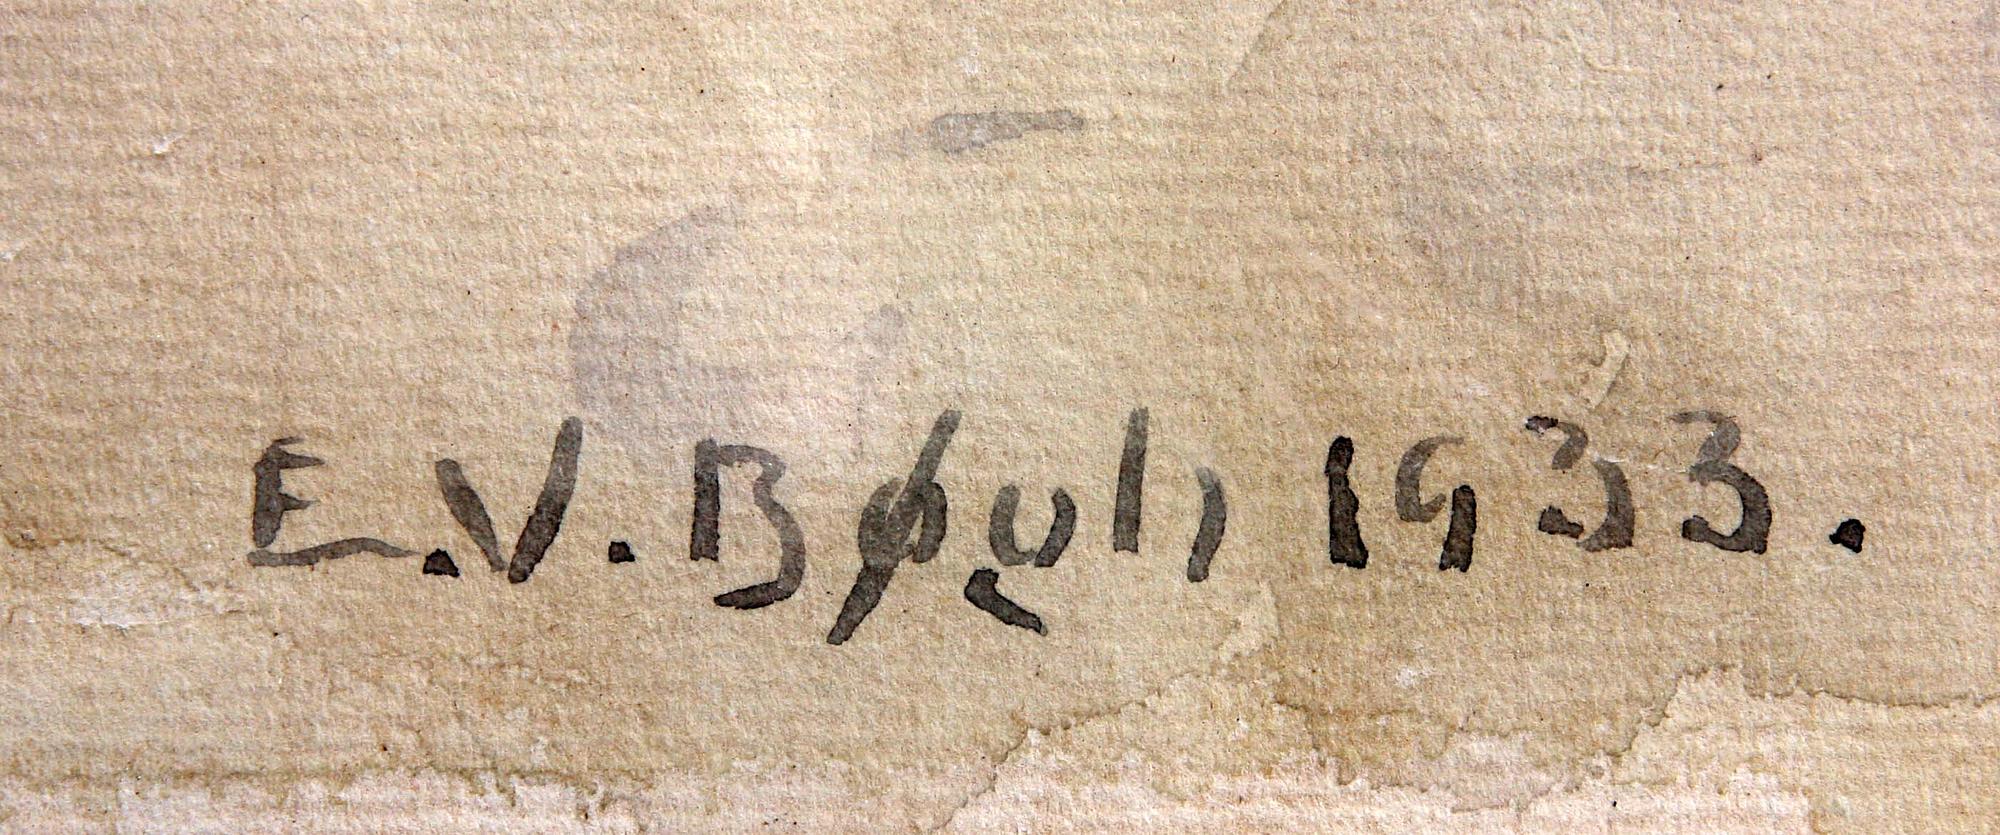 E.V.Bøgh 1933.